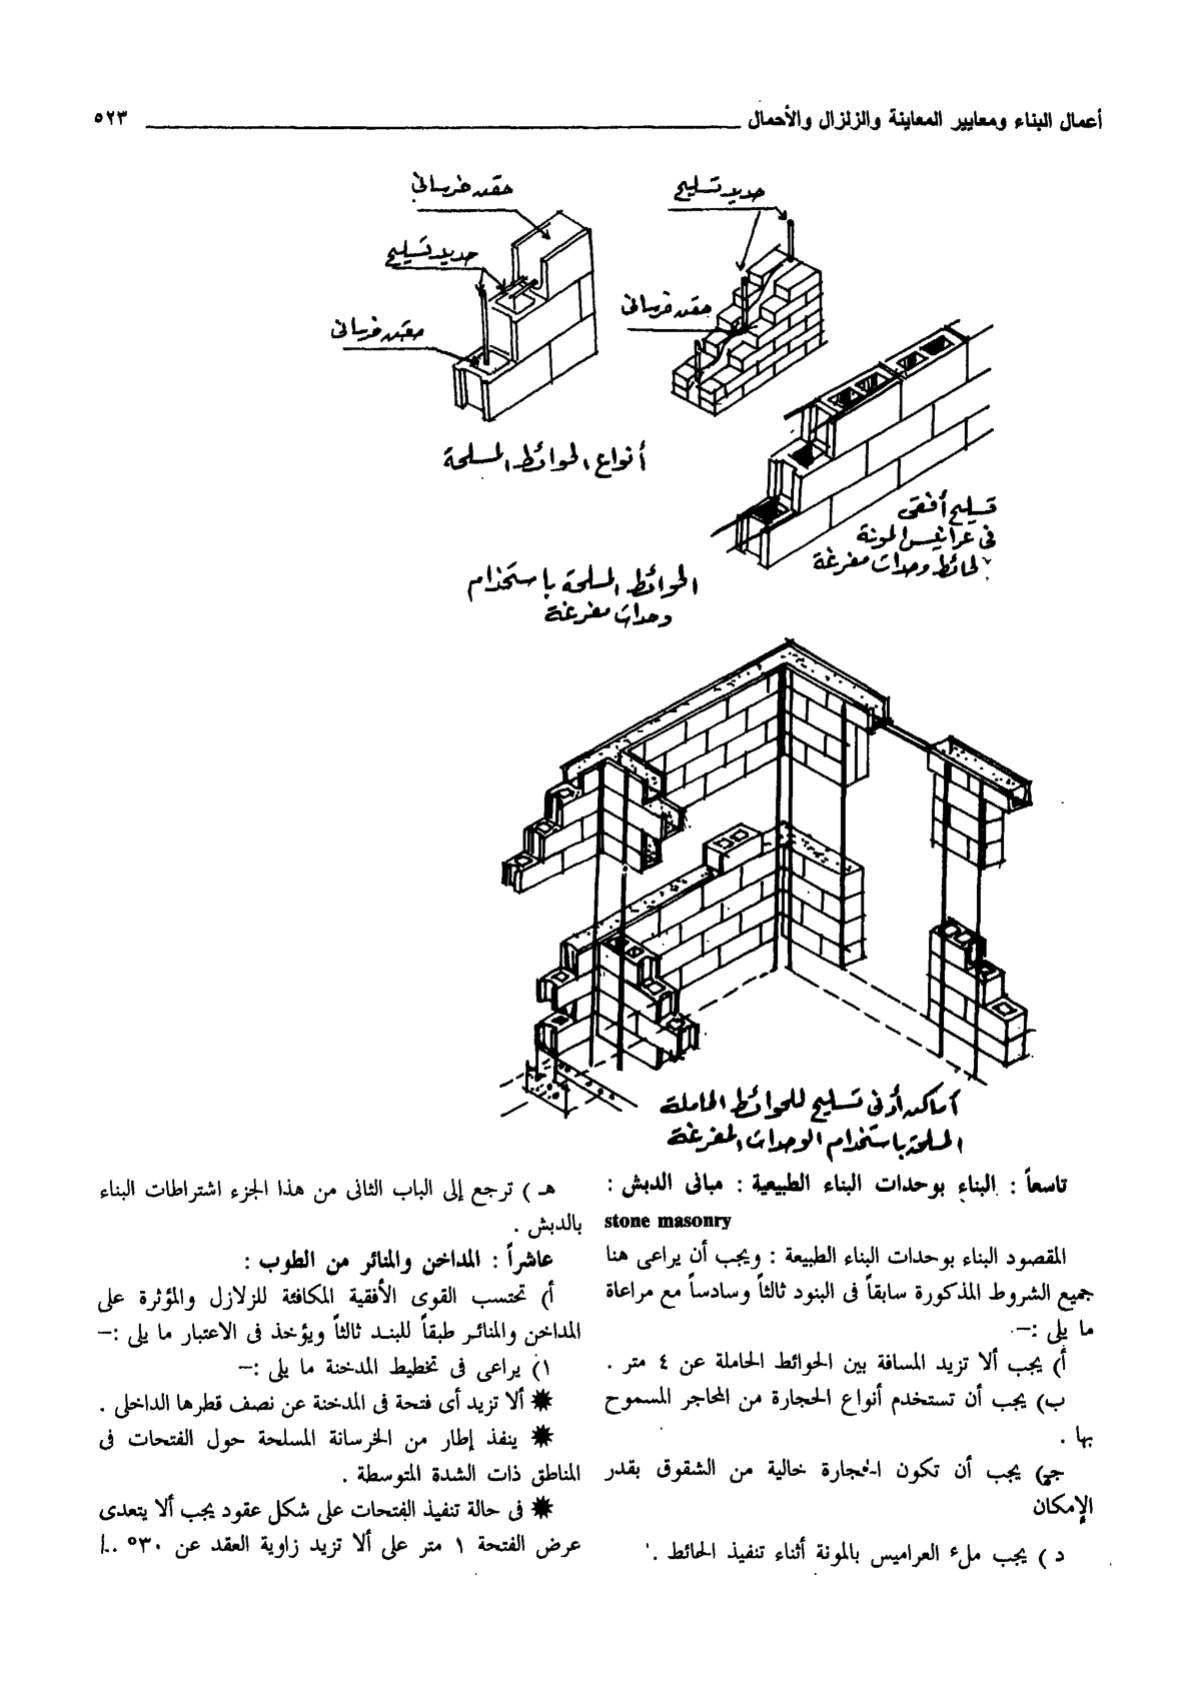 أعمال البناء ومعايير المعاينة والزلزال والأحمال ٥٢٣
حقن خرسانى
حديد تسليح
حقن خرسانى
حديد تسليح
حقن خرسانى
أنواع الحوائط المسلحة
تسليح أفقى
فى عراميس المونة
لحائط وحدات مفرغة
الحوائط المسلحة باستخدام
وحدات مفرغة
أماكن أدنى تسليح للحوائط الحاملة
المسلحة باستخدام الوحدات المفرغة
تاسعاً : البناء بوحدات البناء الطبيعية : مبانى الدبش :
stone masonry
المقصود البناء بوحدات البناء الطبيعة : ويجب أن يراعى هنا
جميع الشروط المذكورة سابقاً فى البنود ثالثاً وسادساً مع مراعاة
ما يلى :–
أ) يجب ألا تزيد المسافة بين الحوائط الحاملة عن ٤ متر .
ب) يجب أن تستخدم أنواع الحجارة من المحاجر المسموح
بها .
جـ) يجب أن تكون الحجارة خالية من الشقوق بقدر
الإمكان
د ) يجب ملء العراميس بالمونة أثناء تنفيذ الحائط .
هـ ) ترجع إلى الباب الثانى من هذا الجزء اشتراطات البناء
بالدبش .
عاشراً : المداخن والمنائر من الطوب :
أ) تحتسب القوى الأفقية المكافئة للزلازل والمؤثرة على
المداخن والمنائر طبقاً للبند ثالثاً ويؤخذ فى الاعتبار ما يلى :–
١) يراعى فى تخطيط المدخنة ما يلى :–
✸ ألا تزيد أى فتحة فى المدخنة عن نصف قطرها الداخلى .
✸ ينفذ إطار من الخرسانة المسلحة حول الفتحات فى
المناطق ذات الشدة المتوسطة .
✸ فى حالة تنفيذ الفتحات على شكل عقود يجب ألا يتعدى
عرض الفتحة ١ متر على ألا تزيد زاوية العقد عن ٣٠° ..